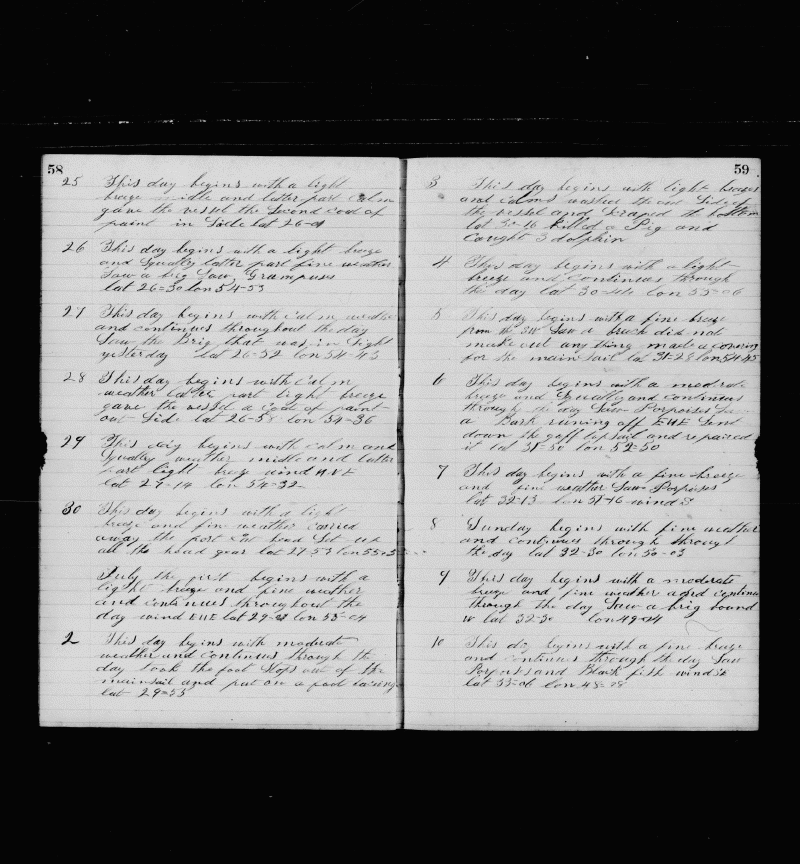 58
25 This day begins with a light
breeze midle and latter part Calm
gave the vessel the Second Coat of
paint in Side lat 26-01
26 This day begins with a light breeze
and Squally latter part fine weather
Saw a brig Saw Grampuses
lat 26=30 lon 54-53
27 This day begins with Calm weather
and continues throughout the day
Saw the Brig that was in Sight
yesterday lat 26-52 lon 54-43
28 This day begins with Calm
weather latter part light breeze
gave the vessel a Coat of paint
out Side lat 26-58 lon 54-36
29 This day begins with calm and
Squally weather midle and latter
part light breeze wind
lat 27-14 lon 54-32
30 This day begins with a light
breeze and fine weather carried
away the port Cat head Set up
all the head gear lat 27-53 lon 55-
July the first begins with a
light breeze and fine weather
and continues throughout the
day wind ENE lat 29- lon 55-04
2 This day begins with moderate
weather and Continues through the
day took the foot Stops out of the
mainsail and put on a foot lacing
lat 29=53
59
3 This day begins with light breezes
and Calms washed the Side of
the vessel and Scraped the bottom
lat 30-16 killed a Pig and
Caught 3 dolphin
4 This day begins with a light
breeze and Continues through
the day lat 30-44 lon 55=06
5 This day begins with a fine breeze
from the SW Saw a bark did not
make out any thing made a covering
for the main sail lat 31-28 lon 54-45
6 This day begins with a modrate
breeze and Squally and continues
through the day Saw Porpoises Saw
a Bark runing off ENE Send
down the gaff topsail and repaired
it lat 31-50 lon 52-50
7 This day begins with a fine breeze
and fine weather Saw Porpoises
lat 32-13 lon 51-16 wind S
8 Sunday begins with fine weather
and continues through through
the day lat 32-30 lon 50-03
9 This day begins with a moderate
breeze and fine weather and continues
through the day Saw a brig bound
W lat 32-30 lon 49-04
10 This day begins with a fine breeze
and continues through the day Saw
Porpoises and Black fish wind
lat 33-06 lon 48-28